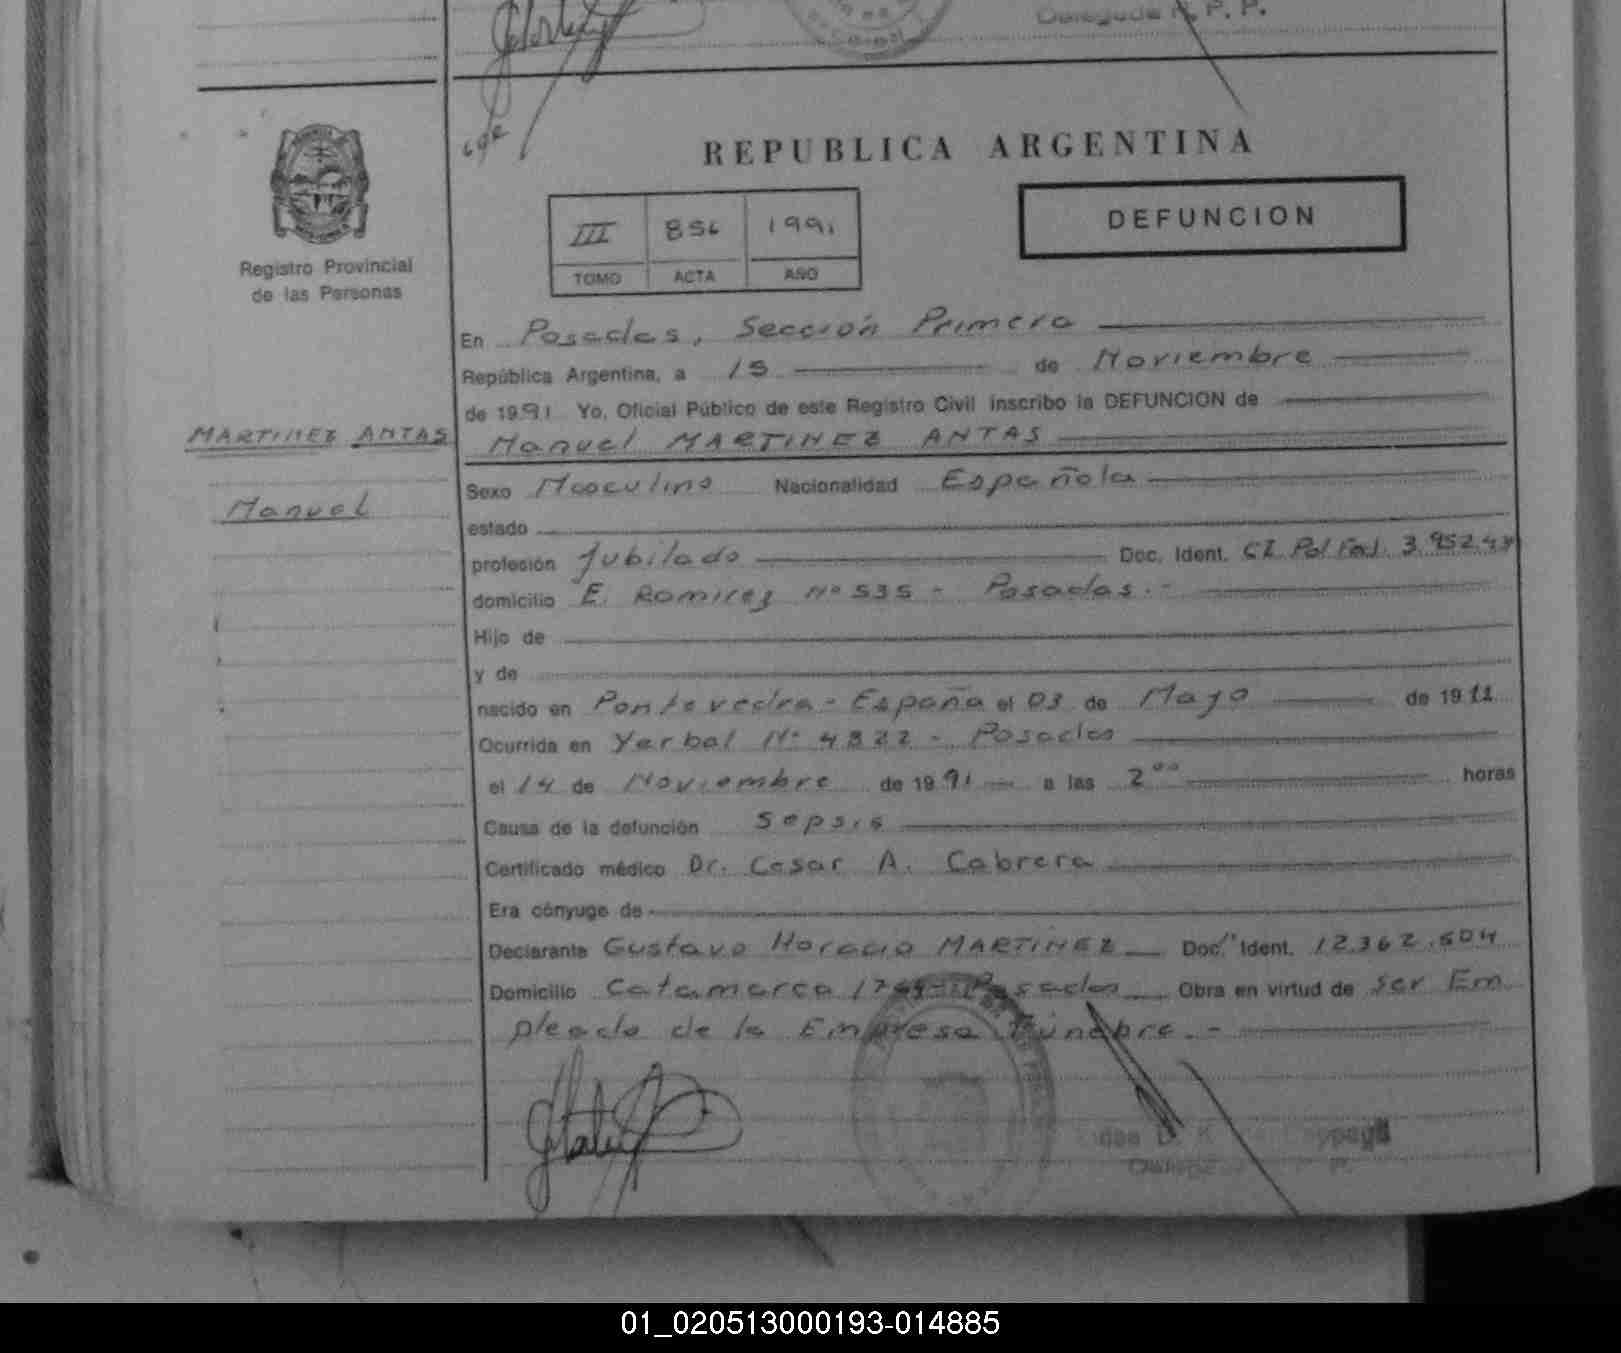 Delegada R. P. P.
cde
Registro Provincial
de las Personas
REPUBLICA ARGENTINA
III 856 1991
TOMO ACTA AÑO
DEFUNCION
En Posadas, Sección Primera
República Argentina, a 15 de Noviembre
de 1991 Yo, Oficial Público de este Registro Civil inscribo la DEFUNCION de
MARTINEZ ANTAS
Manuel MARTINEZ ANTAS
Manuel
Sexo Masculino Nacionalidad Española
estado
profesión Jubilado Doc. Ident. CI. Pol Fed. 3.952.
domicilio E. Ramirez Nº 535 - Posadas.-
Hijo de
y de
nacido en Pontevedra - España el 03 de Mayo de 1911
Ocurrida en Yerbal Nº 4822 - Posadas
el 14 de Noviembre de 1991 a las 2°° horas
Causa de la defunción Sepsis
Certificado médico Dr. Cesar A. Cabrera
Era cónyuge de
Declarante Gustavo Horacio MARTINEZ Doc. Ident. 12.362.504
Domicilio Catamarca Posadas Obra en virtud de ser Em
pleado de la Empresa Fúnebre.-
01_020513000193-014885